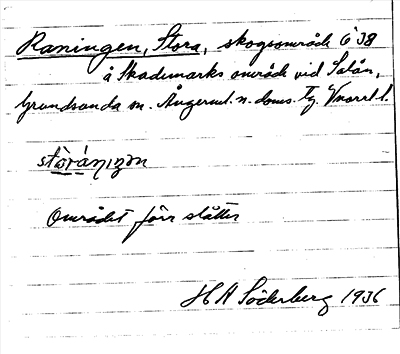 Raningen, Stora, skogsområde Ö 38
å Skademarks område vid Salån,
Grundsunda sn. Ångerml. n. doms. tg. Vnorrl. l.
störáηιŋən
Området förr slåtter
H A Söderberg 1936